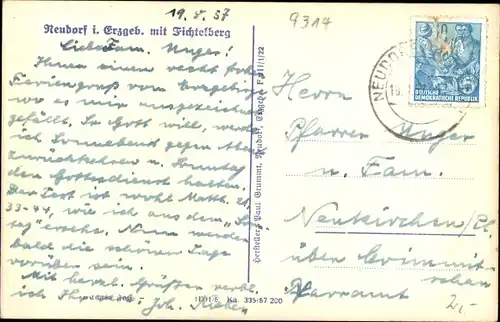 19. 8. 57
9314
Neudorf i. Erzgeb. mit Fichtelberg
Liebe Fam. Unger!
Ihnen einen recht frohen
Feriengruß vom Erzgebirge
wo es mir ausgezeichnet
gefällt. So Gott will, werde
ich Sonnabend gegen Abend
zurückkehren u. Sonntag
den Gottesdienst halten.
Der Text ist wohl Matth. 21,
33-44, wie ich aus dem "Sonn
tag" ersehe. Nun werden
bald die schönen Tage
vorüber sein.
Mit herzl. Grüßen verbl.
ich Ihr Joh.
III/1/5 Ka 335/57 200
Hersteller: Paul Grummt, Neudorf, Erzgeb. F III/1/22
NEUDORF
DEUTSCHE
DEMOKRATISCHE REPUBLIK
5
Herrn
Pfarrer Unger
u. Fam.
Neukirchen/P.
über Crimmit-
schau
Pfarramt
2,-